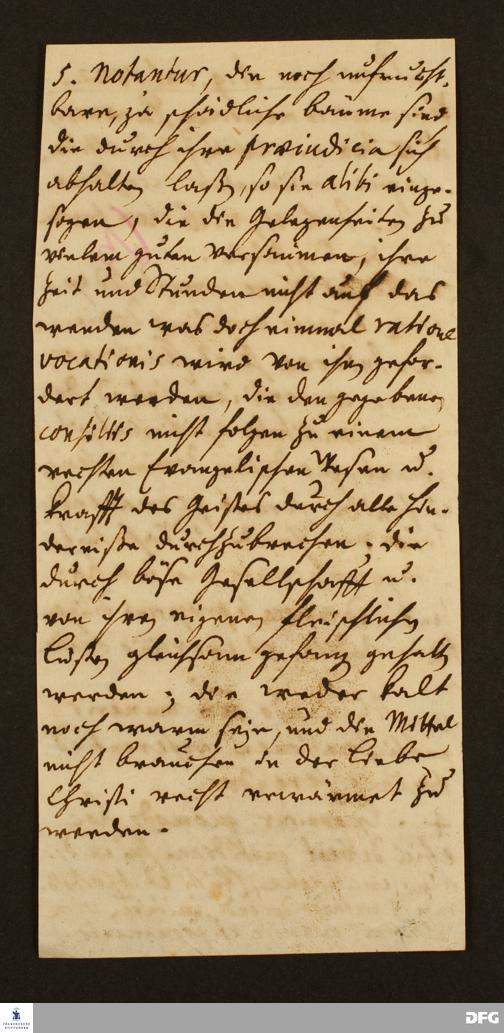 5. Notantur, die noch unfrucht-
bare, ja schädliche bäume sind
die durch ihre præiudicia sich
abhalten laßen, so sie alibi einge-
sogen, die die Gelegenheiten zu
vielem guten versäumen, ihre
Zeit und Stunden nicht auf das
wenden was doch einmal ratione
vocationis wird von ihnen gefor-
dert werden, die den gegebenen
consiliis nicht folgen zu einem
rechten Evangelischen Wesen u.
krafft des Geistes durch alle hin-
derniße durchzubrechen; die
durch böse Gesellschafft u.
von ihren eigenen fleischlichen
Lüsten gleichsam gefangen gehalten
werden; die weder kalt
noch warm seyn, und die Mittel
nicht brauchen in der Liebe
Christi recht erwärmet zu
werden.
FRANCKESCHE
STIFTUNGEN
DFG